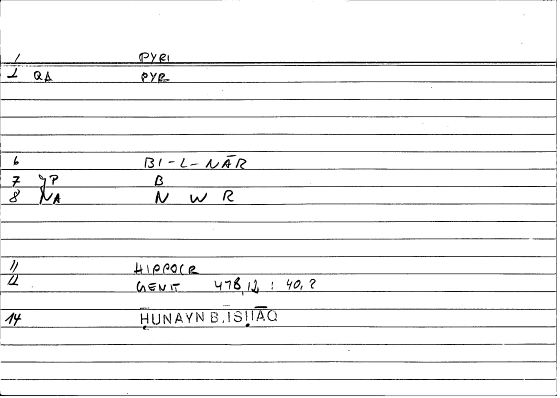 1 PYRI
2 QA PYR
6 BI-L-NĀR
7 JP B
8 NA N W R
11 HIPPOCR
12 GENIT 478,12 : 40,2
14 ḤUNAYN B.ISḤĀQ